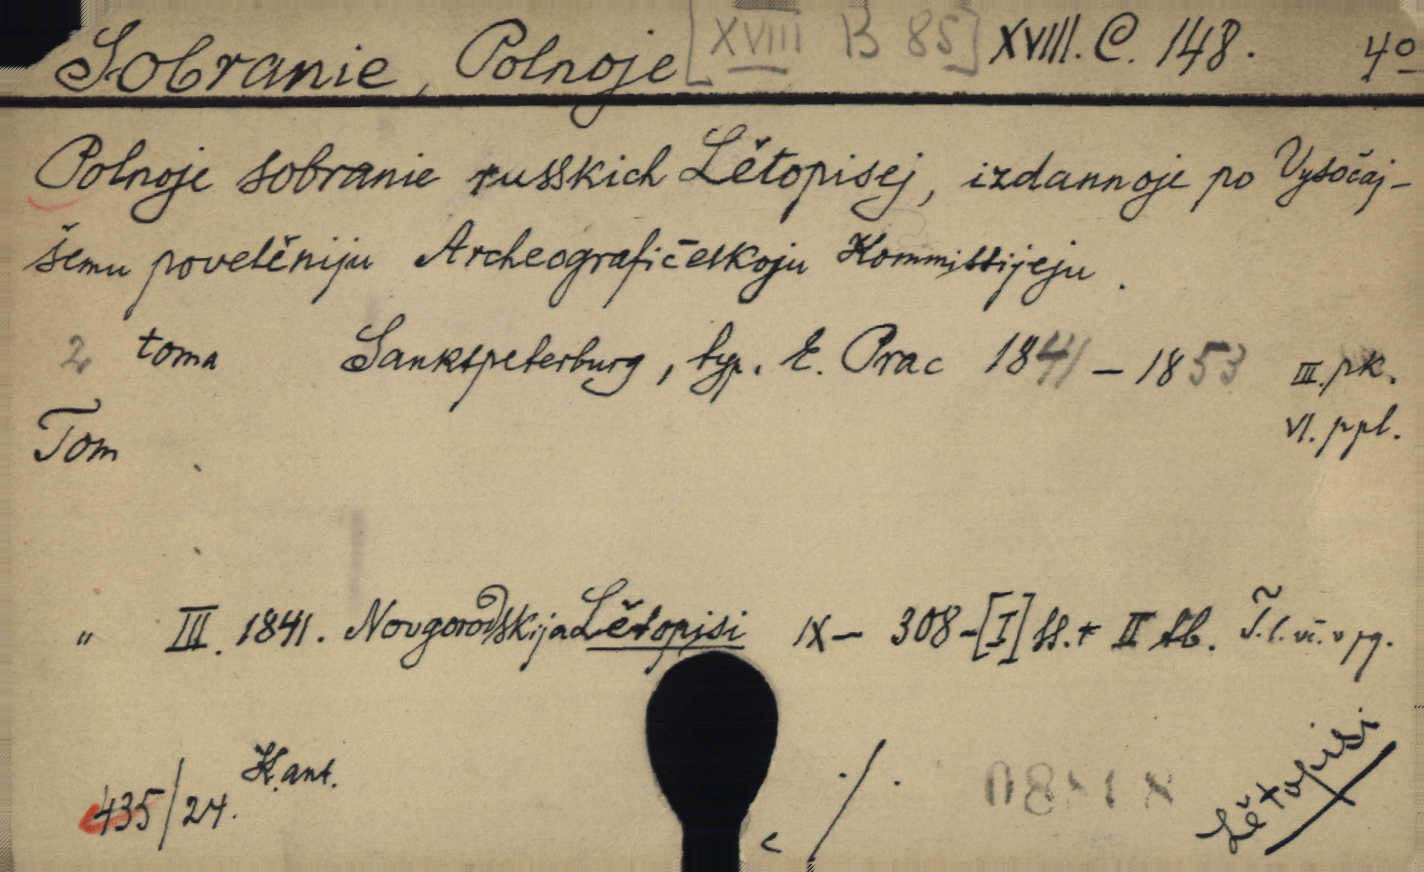 Sobranie, Polnoje [XVIII B 85] XVIII. C. 148. 4º
Polnoje sobranie russkich Lětopisej, izdannoje po Vysočaj-
šemu povelěniju Archeografičeskoju Kommissijeju.
2 toma Sanktpeterburg, typ. E. Prac 1841 – 1853 III. pk.
Tom VI. ppl.
„ III. 1841. Novgorodskija Lětopisi IX – 308 – [I] ss. + II tb. T. l. vč. v pg.
435/24. K. ant. ./.
Lětopisi